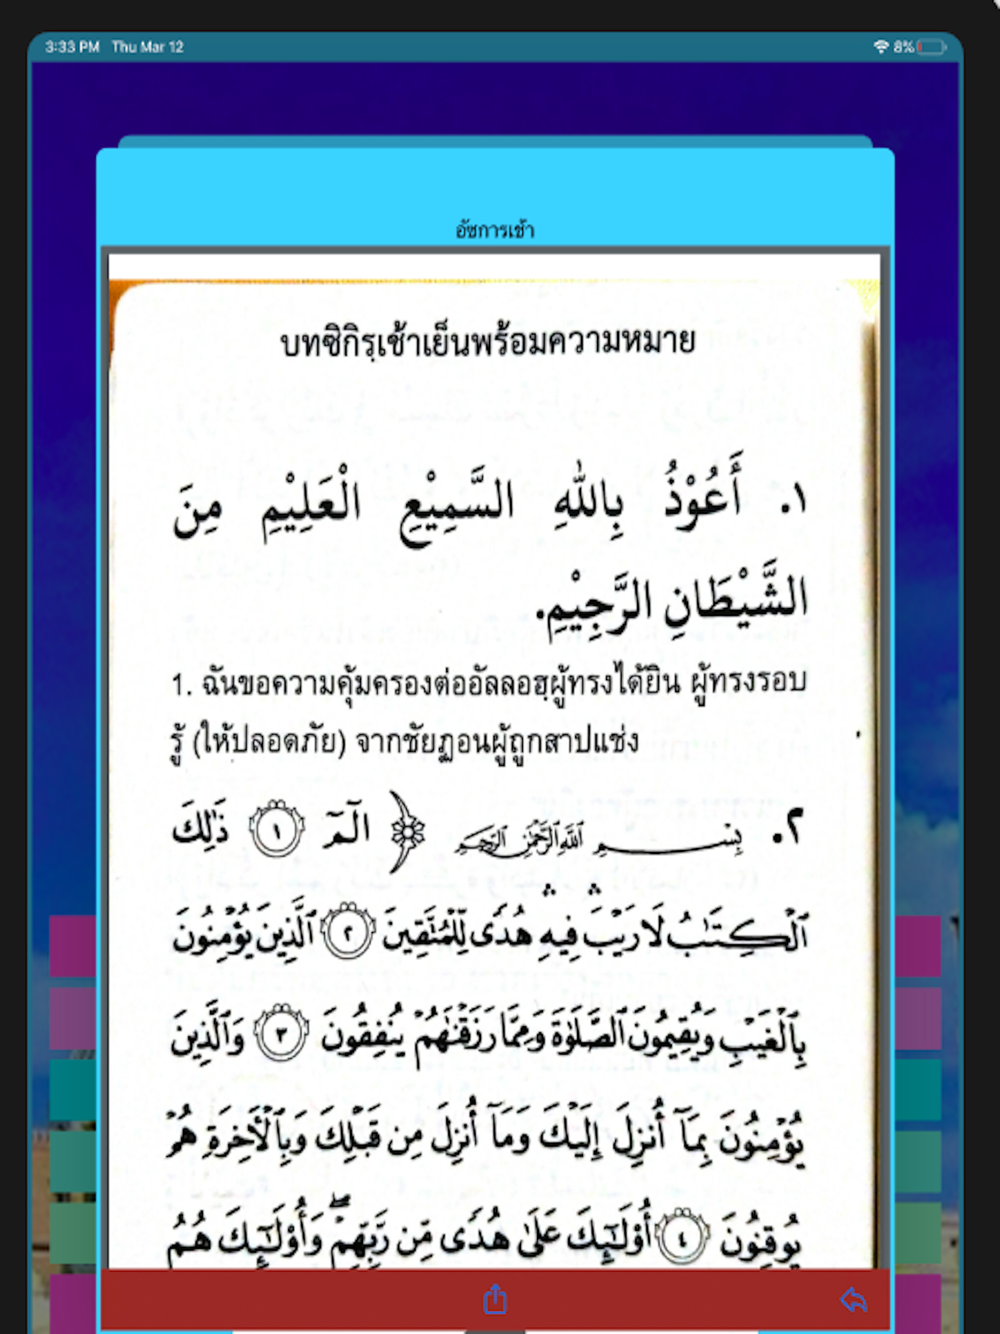 3:33 PM Thu Mar 12 8%
อัซการเช้า
บทซิกิรฺเช้าเย็นพร้อมความหมาย
١. أَعُوْذُ بِاللهِ السَّمِيْعِ الْعَلِيْمِ مِنَ
الشَّيْطَانِ الرَّجِيْمِ.
1. ฉันขอความคุ้มครองต่ออัลลอฮฺผู้ทรงได้ยิน ผู้ทรงรอบ
รู้ (ให้ปลอดภัย) จากชัยฏอนผู้ถูกสาปแช่ง
٢. بِسْمِ ٱللَّهِ ٱلرَّحْمَٰنِ ٱلرَّحِيمِ ﴿ الٓمٓ ١ ذَٰلِكَ
ٱلْكِتَٰبُ لَا رَيْبَ ۛ فِيهِ ۛ هُدًى لِّلْمُتَّقِينَ ٢ ٱلَّذِينَ يُؤْمِنُونَ
بِٱلْغَيْبِ وَيُقِيمُونَ ٱلصَّلَوٰةَ وَمِمَّا رَزَقْنَٰهُمْ يُنفِقُونَ ٣ وَٱلَّذِينَ
يُؤْمِنُونَ بِمَآ أُنزِلَ إِلَيْكَ وَمَآ أُنزِلَ مِن قَبْلِكَ وَبِٱلْأَخِرَةِ هُمْ
يُوقِنُونَ ٤ أُوْلَٰٓئِكَ عَلَىٰ هُدًى مِّن رَّبِّهِمْ ۖ وَأُوْلَٰٓئِكَ هُمُ